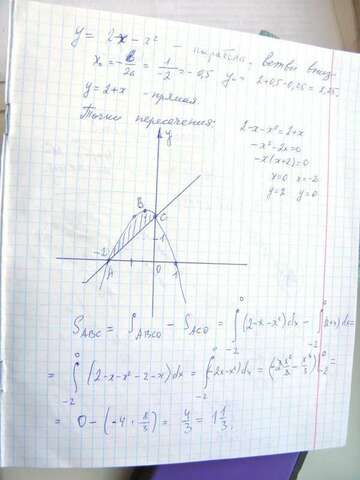 y = 2 - x - x² - парабола, ветви вниз.
x₀ = -b/2a = 1/-2 = -0,5 y₀ = 2+0,5-0,25 = 2,25.
y = 2+x - прямая
Точки пересечения:
2-x-x² = 2+x
-x²-2x=0
-x(x+2)=0
x=0 x=-2
y=2 y=0
y
B
C
1
-2
A
0
1
S_ABC = S_ABCO - S_ACO = ∫₋₂⁰ (2-x-x²)dx - ∫₋₂⁰ (2+x)dx =
= ∫₋₂⁰ (2-x-x²-2-x)dx = ∫₋₂⁰ (-2x-x²)dx =
= 0 - (-4 + 8/3) = 4/3 = 1 1/3.